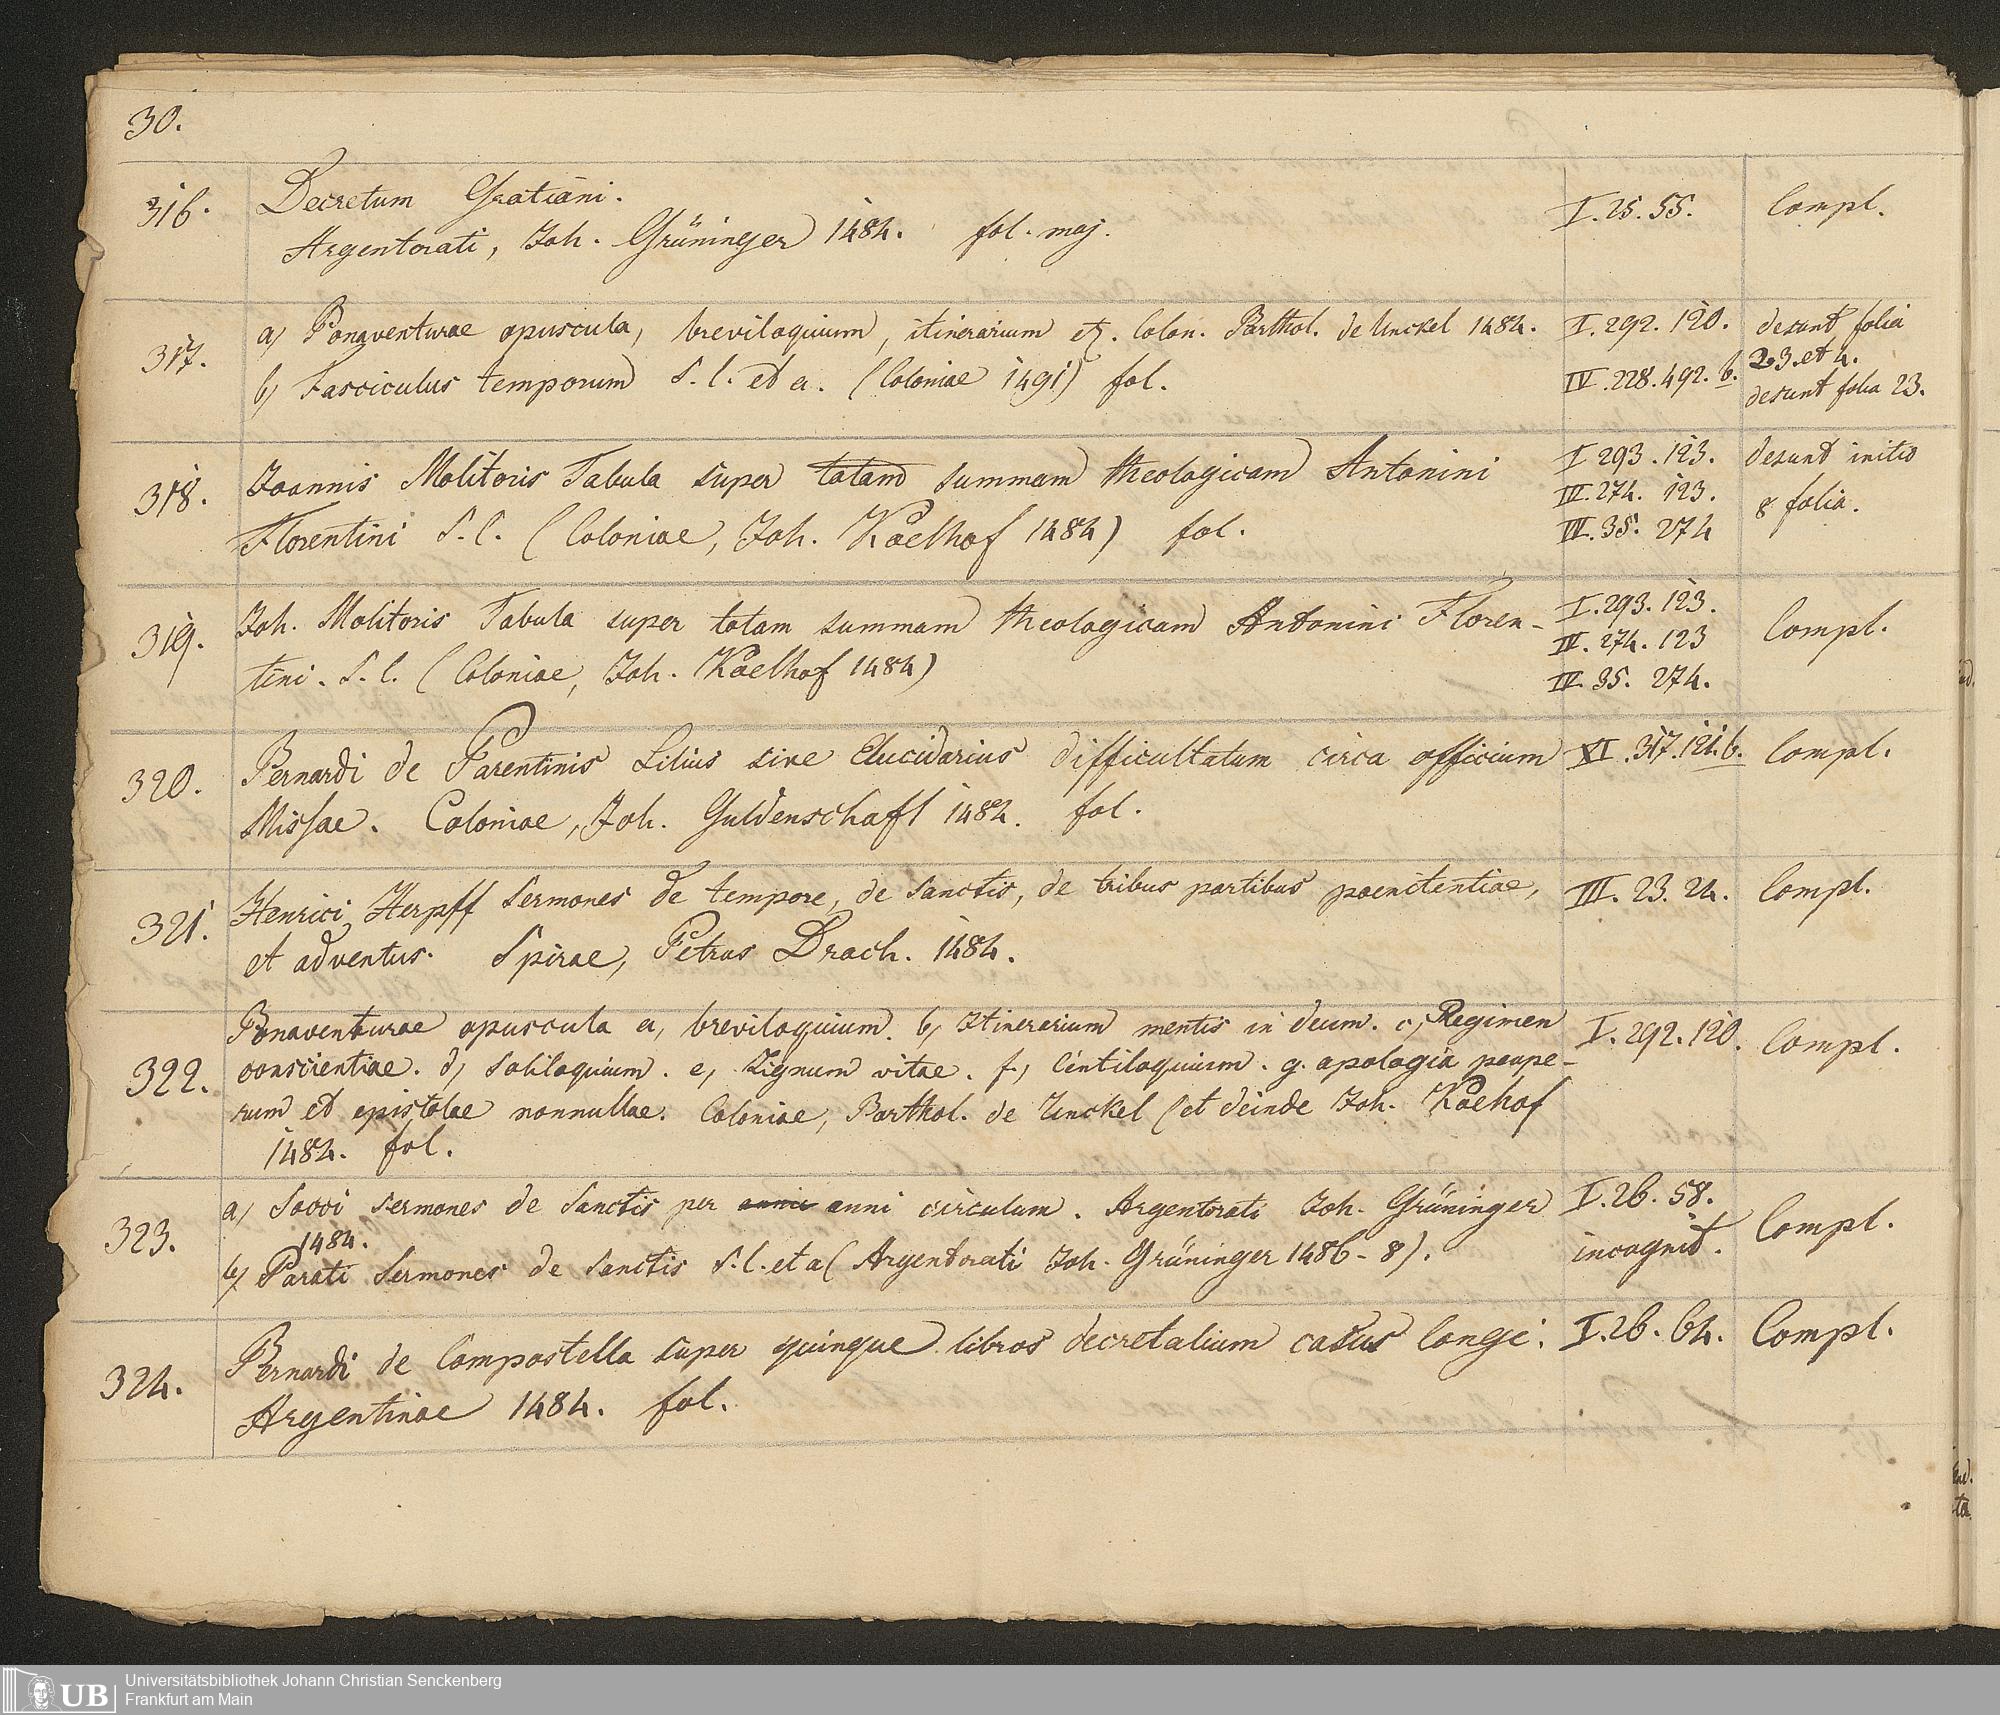 30.
316. Decretum Gratiani. I. 25. 55. Compl.
Argentorati, Joh. Grüninger 1484. fol. maj.
317. a) Bonaventurae opuscula, breviloquium, itinerarium etz. Colon. Barthol. de Unckel 1484. I. 292. 120. desunt folia
2.3. et 4.
b) Fasciculus temporum S. l. et a. (Coloniae 1491) fol. IV. 228. 492. b. desunt folia 23.
318. Joannis Molitoris Tabula super totam summam theologicam Antonini I 293. 123. desunt initio
III. 274. 123. 8 folia.
Florentini S. l. (Coloniae, Joh. Koelhof 1484) fol. IV. 35. 274
319. Joh. Molitoris Tabula super totam summam theologicam Antonini Floren- I. 293. 123. Compl.
II. 274. 123
tini. S. l. (Coloniae, Joh. Koelhof 1484) IV. 35. 274.
320. Bernardi de Parentinis Lilius sive Elucidarius difficultatum circa officium XI. 317. 121. b. Compl.
Missae. Coloniae, Joh. Guldenschaff 1484. fol.
321. Henrici Herpff Sermones de tempore, de Sanctis, de tribus partibus poenitentiae, III. 23. 24. Compl.
et adventus. Spirae, Petrus Drach. 1484.
322. Bonaventurae opuscula a, breviloquium. b, Itinerarium mentis in deum. c, Regimen I. 292. 120. Compl.
conscientiae. d, Soliloquium. e, Lignum vitae. f, Centiloquium. g. apologia paupe-
rum et epistolae nonnullae. Coloniae, Barthol. de Unckel (et deinde Joh. Koehof
1484. fol.
323. a) Socci Sermones de Sanctis per anni circulum. Argentorati Joh. Grüninger I. 26. 58. Compl.
1484.
b) Parati Sermones de Sanctis S. l. et a (Argentorati Joh. Grüninger 1486-8). incognit.
324. Bernardi de Compostella super quinque libros decretalium casus longi. I. 26. 64. Compl.
Argentinae 1484. fol.
UB
Universitätsbibliothek Johann Christian Senckenberg
Frankfurt am Main